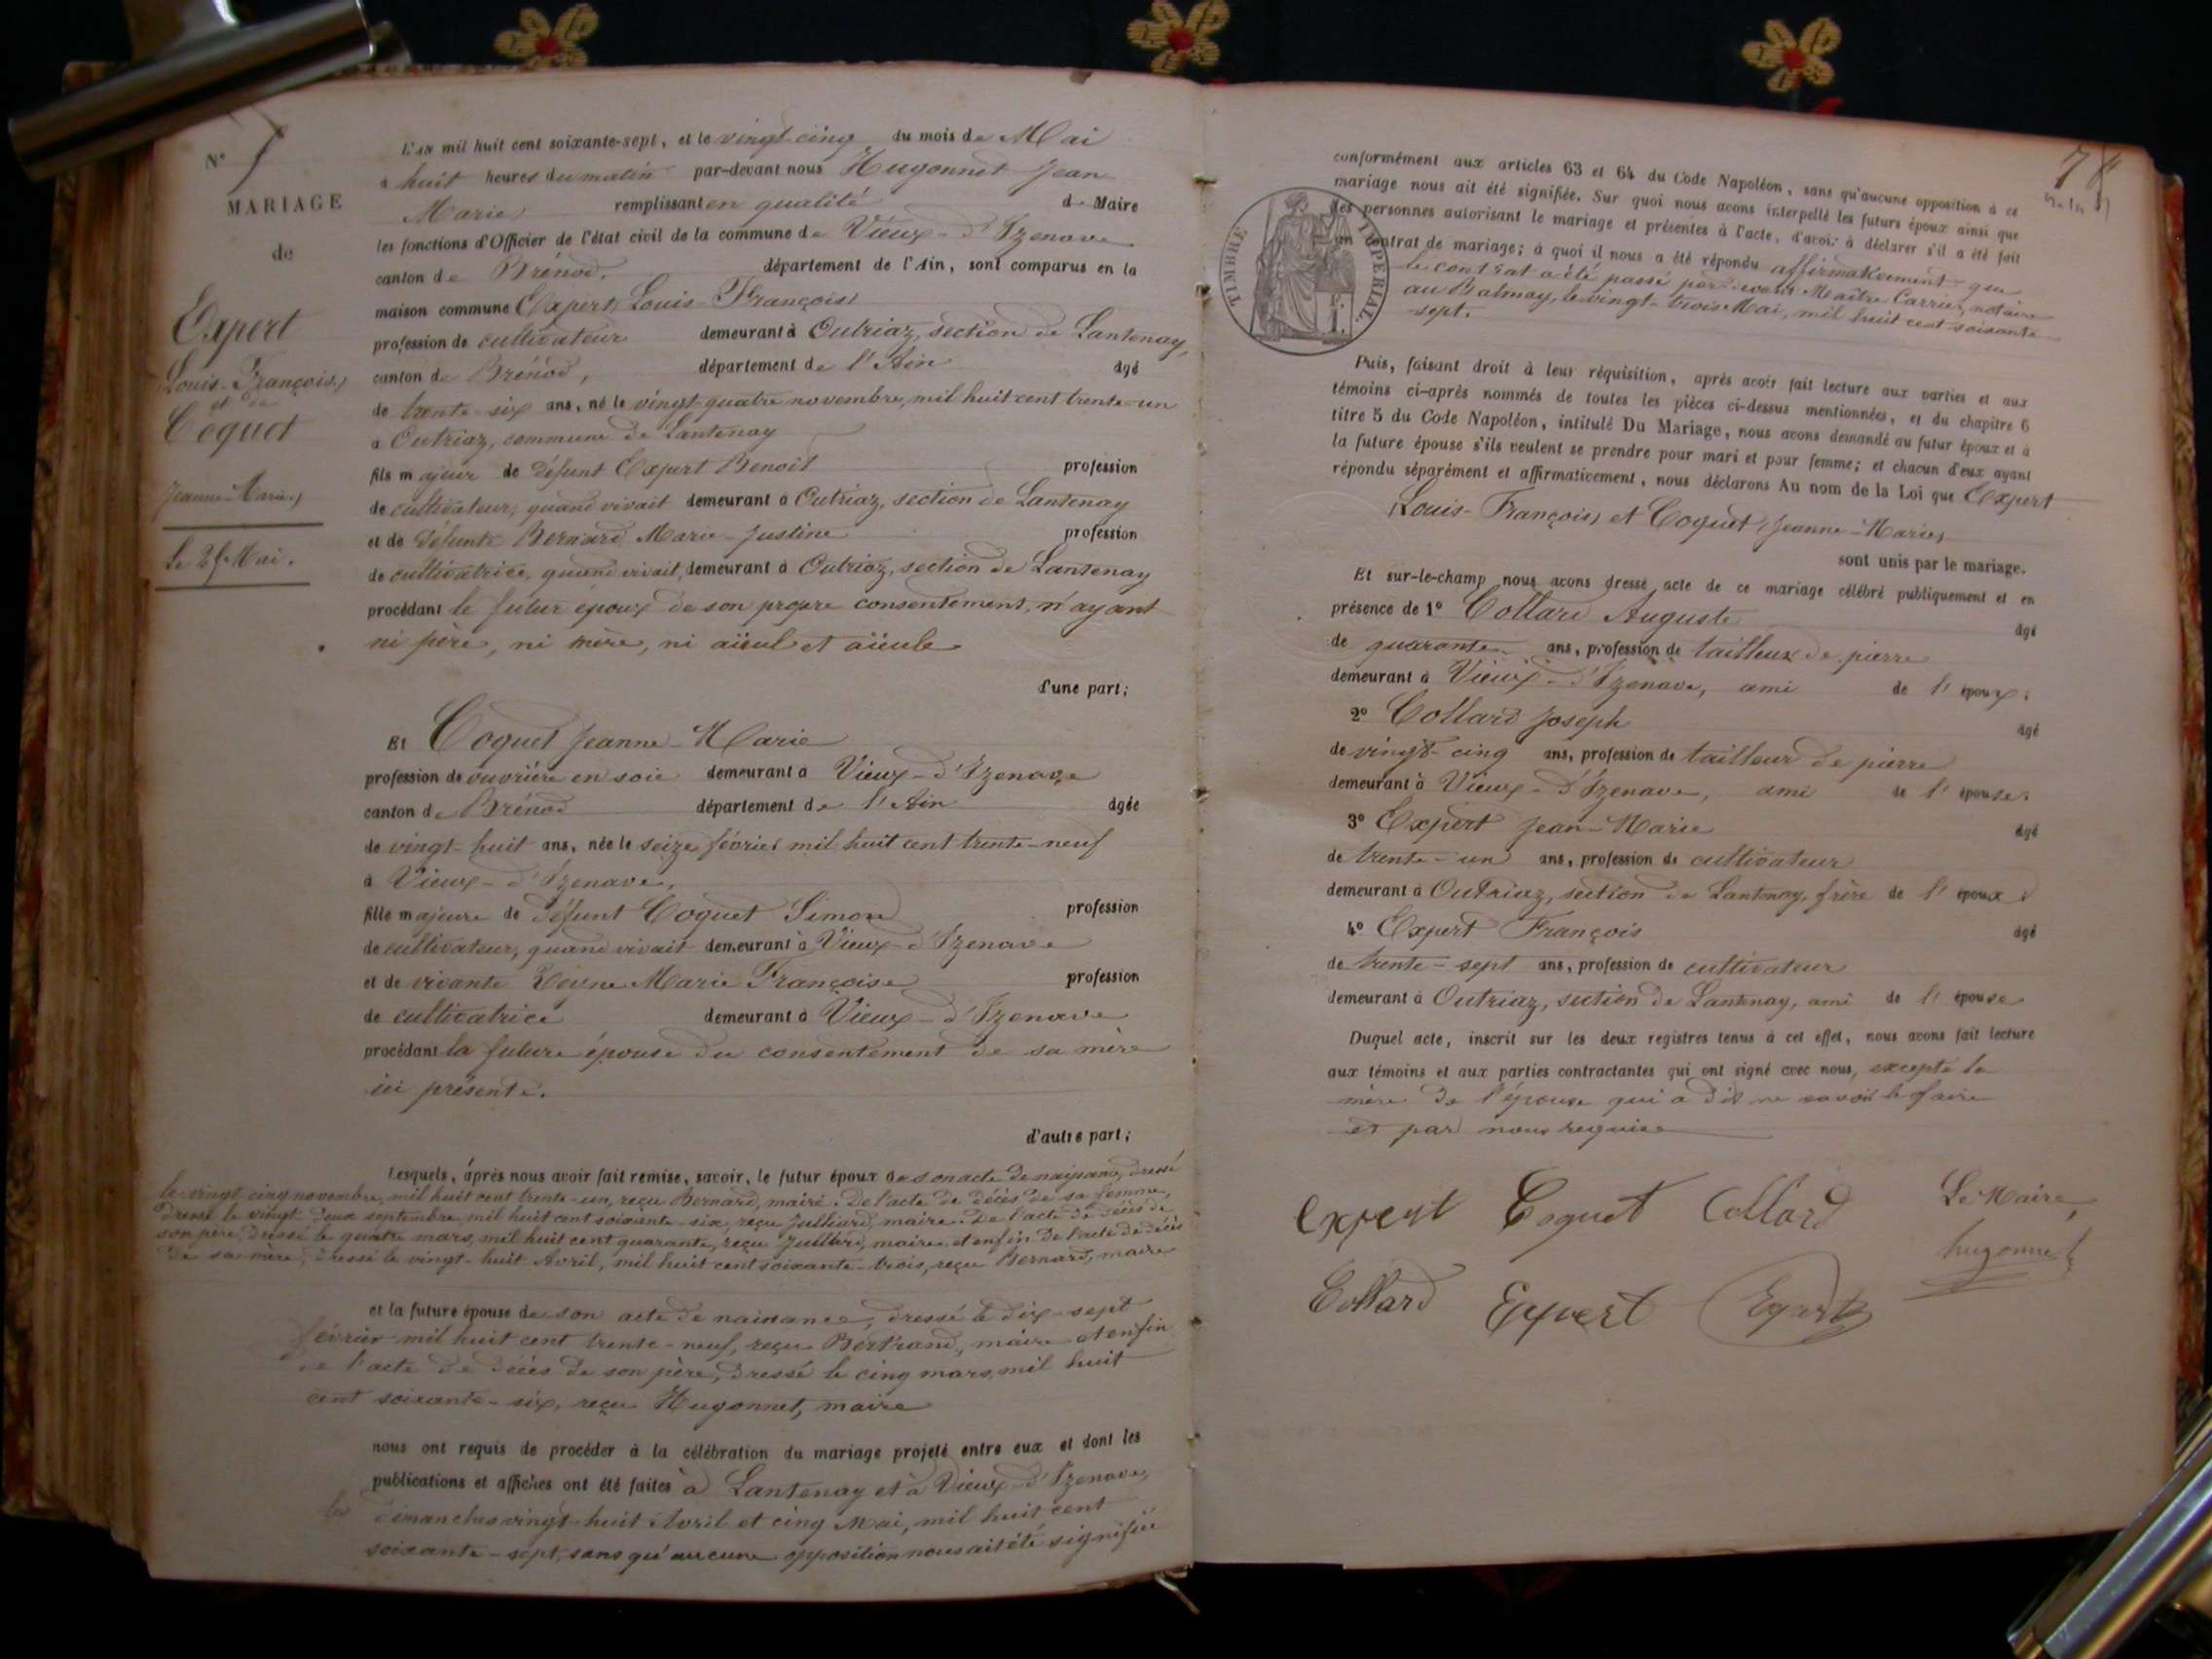 N° 7
MARIAGE
de
Expert
Louis-François,
et de
Coquet
Jeanne-Marie,
Le 25 Mai.
L'AN mil huit cent soixante-sept, et le vingt-cinq du mois de Mai
à huit heures du matin par-devant nous Hugonnet Jean
Marie remplissant en qualité de Maire
les fonctions d'Officier de l'état civil de la commune de Vieux-d'Izenave
canton de Brénod, département de l'Ain, sont comparus en la
maison commune Expert, Louis-François,
profession de cultivateur demeurant à Outriaz, section de Lantenay,
canton de Brénod, département de l'Ain âgé
de trente-six ans, né le vingt-quatre novembre, mil huit cent trente-un
à Outriaz, commune de Lantenay
fils majeur de défunt Expert Benoît profession
de cultivateur, quand vivait demeurant à Outriaz, section de Lantenay
et de défunte Bernard Marie-Justine profession
de cultivatrice, quand vivait, demeurant à Outriaz, section de Lantenay
procédant le futur époux de son propre consentement, n'ayant
ni père, ni mère, ni aïeul et aïeule
d'une part;
Et Coquet Jeanne-Marie
profession de ouvrière en soie demeurant à Vieux-d'Izenave
canton de Brénod département de l'Ain âgée
de vingt-huit ans, née le seize février mil huit cent trente-neuf
à Vieux-d'Izenave,
fille majeure de défunt Coquet Simon profession
de cultivateur, quand vivait demeurant à Vieux-d'Izenave
et de vivante Marie Françoise profession
de cultivatrice demeurant à Vieux-d'Izenave
procédant la future épouse du consentement de sa mère
ici présente.
d'autre part;
Lesquels, après nous avoir fait remise, savoir, le futur époux de son acte de naissance, dressé
le vingt-cinq novembre, mil huit cent trente-un, reçu Bernard, maire. De l'acte de décès de sa femme,
dressé le vingt-deux septembre mil huit cent soixante-six, reçu Julliard, maire. De l'acte de décès de
son père, dressé le quatre mars, mil huit cent quarante, reçu Julliard, maire, et enfin de l'acte de décès
de sa mère, dressé le vingt-huit Avril, mil huit cent soixante-trois, reçu Bernard, maire
et la future épouse de son acte de naissance, dressé le dix-sept
février mil huit cent trente-neuf, reçu Bertrand, maire et enfin
de l'acte de décès de son père, dressé le cinq mars, mil huit
cent soixante-six, reçu Hugonnet, maire
nous ont requis de procéder à la célébration du mariage projeté entre eux et dont les
publications et affiches ont été faites à Lantenay et à Vieux-d'Izenave,
les dimanches vingt-huit Avril et cinq Mai, mil huit cent
soixante-sept, sans qu'aucune opposition nous ait été signifiée
7
conformément aux articles 63 et 64 du Code Napoléon, sans qu'aucune opposition à ce
mariage nous ait été signifiée. Sur quoi nous avons interpellé les futurs époux ainsi que
les personnes autorisant le mariage et présentes à l'acte, d'avoir à déclarer s'il a été fait
un contrat de mariage; à quoi il nous a été répondu affirmativement que
le contrat a été passé par devant Maître Carrier, notaire
au Balmay, le vingt-trois Mai, mil huit cent soixante
sept.
TIMBRE IMPERIAL
Puis, faisant droit à leur réquisition, après avoir fait lecture aux parties et aux
témoins ci-après nommés de toutes les pièces ci-dessus mentionnées, et du chapitre 6
titre 5 du Code Napoléon, intitulé Du Mariage, nous avons demandé au futur époux et à
la future épouse s'ils veulent se prendre pour mari et pour femme; et chacun d'eux ayant
répondu séparément et affirmativement, nous déclarons Au nom de la Loi que Expert
Louis-François, et Coquet, Jeanne-Marie,
sont unis par le mariage.
Et sur-le-champ nous avons dressé acte de ce mariage célébré publiquement et en
présence de 1° Collard Auguste âgé
de quarante ans, profession de tailleur de pierre
demeurant à Vieux-d'Izenave, ami de l'époux;
2° Collard Joseph âgé
de vingt-cinq ans, profession de tailleur de pierre
demeurant à Vieux-d'Izenave, ami de l'épouse.
3° Expert Jean-Marie âgé
de trente-un ans, profession de cultivateur
demeurant à Outriaz, section de Lantenay, frère de l'époux
4° Expert François âgé
de trente-sept ans, profession de cultivateur
demeurant à Outriaz, section de Lantenay, ami de l'épouse
Duquel acte, inscrit sur les deux registres tenus à cet effet, nous avons fait lecture
aux témoins et aux parties contractantes qui ont signé avec nous, excepté la
mère de l'épouse qui a dit ne savoir le faire
et par nous requise
Expert Coquet Collard Le Maire,
hugonnet
Collard Expert Expert